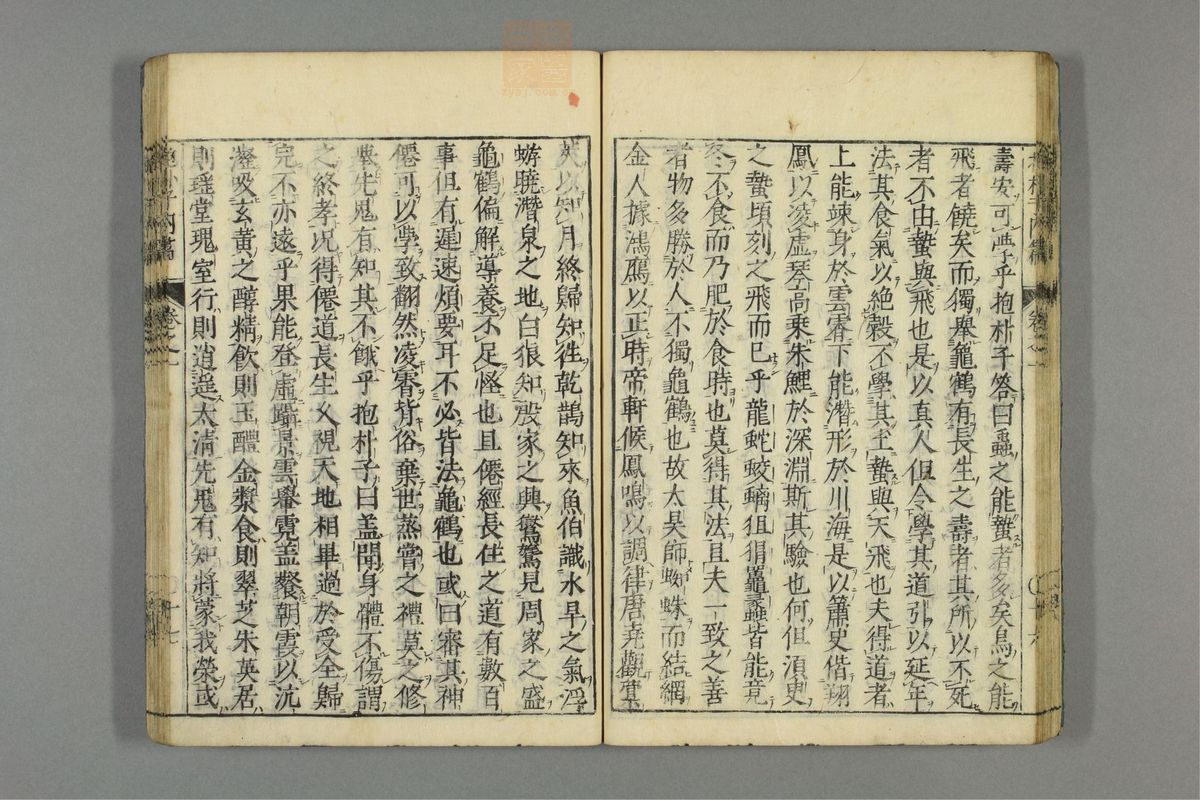 壽安可學乎抱朴子答曰蟲之能蟄者多矣鳥之能
飛者饒矣而獨舉龜鶴有長生之壽者其所以不死
者不由蟄與飛也是以真人但令學其道引以延年
法其食氣以絶穀不學其土蟄與天飛也夫得道者
上能竦身於雲霄下能潛形於川海是以簫史偕翔
鳳以凌虛琴高乘朱鯉於深淵斯其驗也何但須臾
之蟄頃刻之飛而已乎龍蛇蛟螭狙猬鼉蠡皆能竟
冬不食而乃肥於食時也莫得其法且夫一致之善
者物多勝於人不獨龜鶴也故太昊師蜘蛛而結網
金人據鴻鴈以正時帝軒候鳳鳴以調律唐堯觀蓂
莢以知月終歸知往乾鵲知來魚伯識水旱之氣浮
蝣曉潛泉之地白狼知殷家之興鸑鷟見周家之盛
龜鶴偏解導養不足怪也且僊經長生之道有數百
事但有遲速煩要耳不必皆法龜鶴也或曰審其神
僊可以學致翻然凌霄背俗棄世蒸嘗之禮莫之修
奉先鬼有知其不餓乎抱朴子曰盖聞身體不傷謂
之終孝况得僊道長生久視天地相畢過於受全歸
完不亦遠乎果能登虛躡景雲轝霓盖餐朝霞以沆
瀣吸玄黃之醇精飲則玉醴金漿食則翠芝朱英居
則瑶堂瑰室行則逍遥太清先鬼有知將蒙我榮或
抱朴子内篇 卷之一